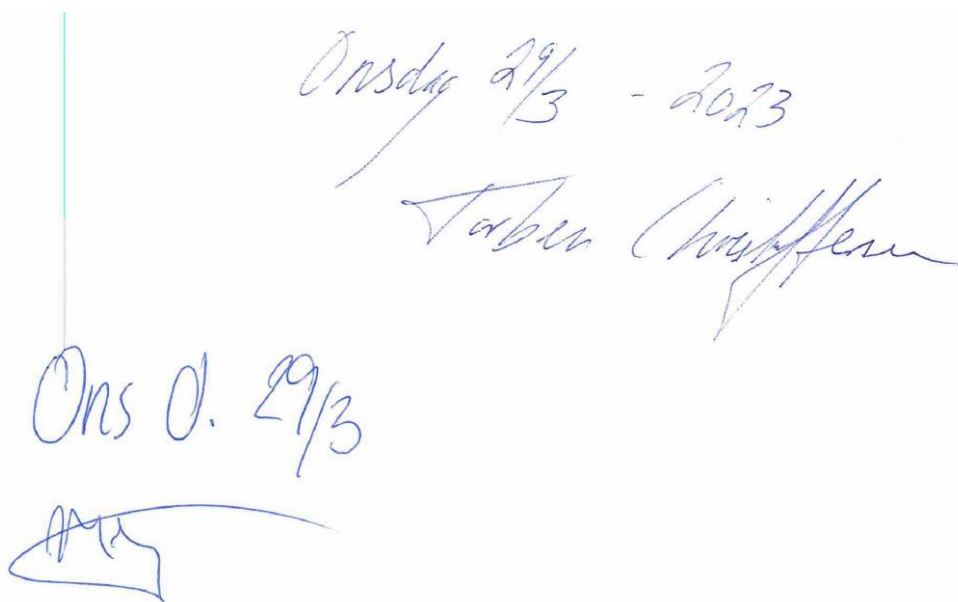 Onsdag 29/3 - 2023
Torben Christoffersen
Ons d. 29/3